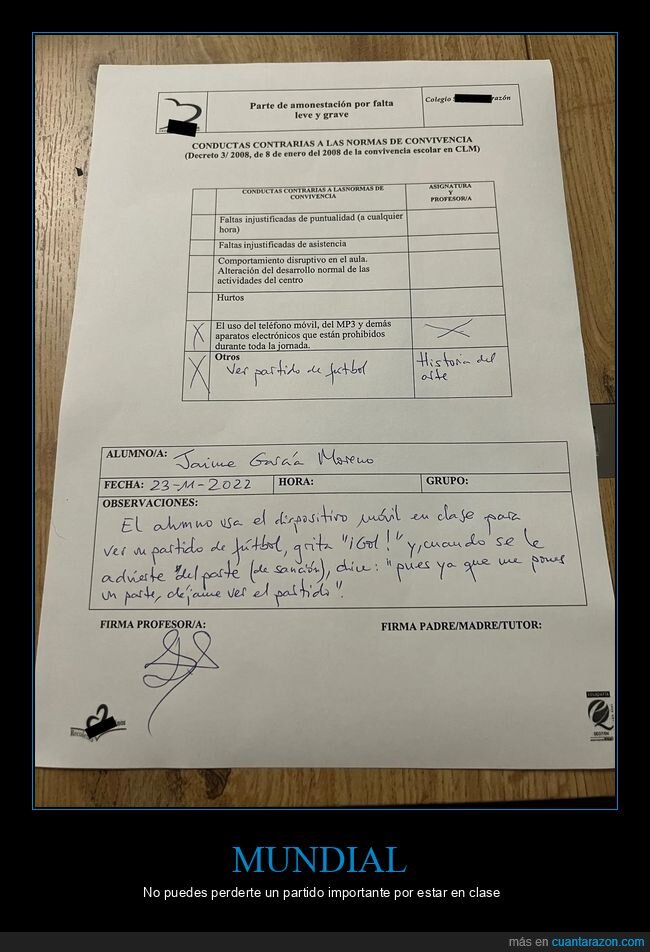 Parte de amonestación por falta
leve y grave
Colegio S razón
CONDUCTAS CONTRARIAS A LAS NORMAS DE CONVIVENCIA
(Decreto 3/ 2008, de 8 de enero del 2008 de la convivencia escolar en CLM)
CONDUCTAS CONTRARIAS A LASNORMAS DE
CONVIVENCIA
ASIGNATURA
Y
PROFESOR/A
Faltas injustificadas de puntualidad (a cualquier
hora)
Faltas injustificadas de asistencia
Comportamiento disruptivo en el aula.
Alteración del desarrollo normal de las
actividades del centro
Hurtos
X
El uso del teléfono móvil, del MP3 y demás
aparatos electrónicos que están prohibidos
durante toda la jornada.
X
X
Otros
Ver partido de fútbol
Historia del
arte
ALUMNO/A: Jaime García Moreno
FECHA: 23-11-2022 HORA: GRUPO:
OBSERVACIONES:
El alumno usa el dispositivo móvil en clase para
ver un partido de fútbol, grita "¡Gol!" y, cuando se le
advierte "del parte (de sanción), dice: "pues ya que me pones
un parte, déjame ver el partido".
FIRMA PROFESOR/A: FIRMA PADRE/MADRE/TUTOR:
MUNDIAL
No puedes perderte un partido importante por estar en clase
más en cuantarazon.com